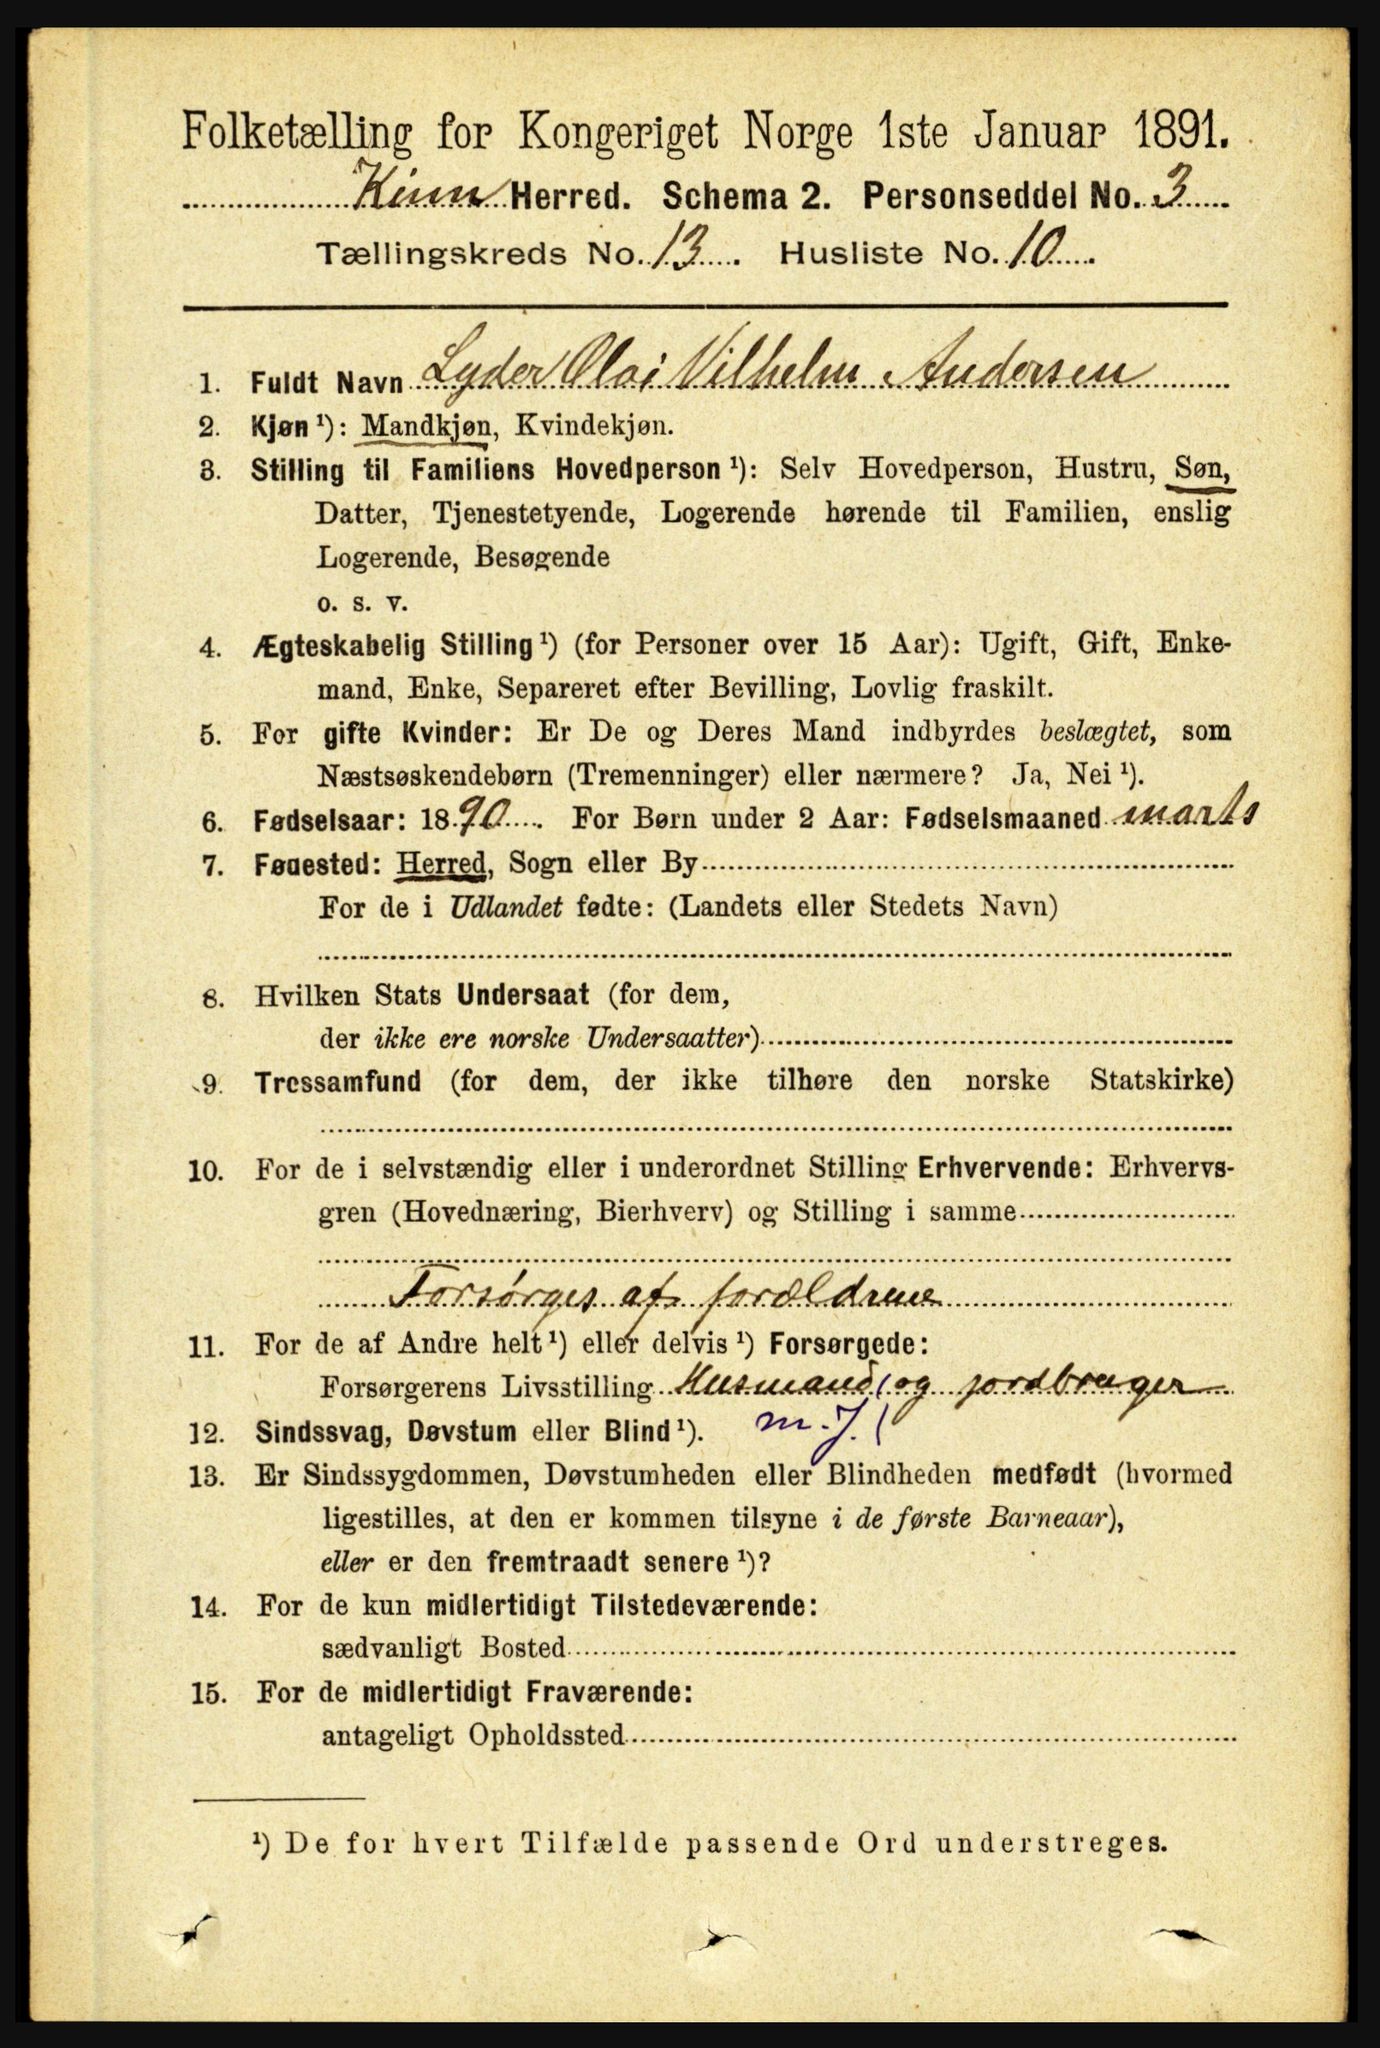 Folketælling for Kongeriget Norge 1ste Januar 1891.
Kinn Herred. Schema 2. Personseddel No. 3
Tællingskreds No. 13. Husliste No. 10
1. Fuldt Navn Lyder Olai Vilhelm Andersen
2. Kjøn ¹): Mandkjøn, Kvindekjøn.
3. Stilling til Familiens Hovedperson ¹): Selv Hovedperson, Hustru, Søn,
Datter, Tjenestetyende, Logerende hørende til Familien, enslig
Logerende, Besøgende
o. s. v.
4. Ægteskabelig Stilling ¹) (for Personer over 15 Aar): Ugift, Gift, Enke-
mand, Enke, Separeret efter Bevilling, Lovlig fraskilt.
5. For gifte Kvinder: Er De og Deres Mand indbyrdes beslægtet, som
Næstsøskendebørn (Tremenninger) eller nærmere? Ja, Nei ¹).
6. Fødselsaar: 1890. For Børn under 2 Aar: Fødselsmaaned marts
7. Fødested: Herred, Sogn eller By
For de i Udlandet fødte: (Landets eller Stedets Navn)
8. Hvilken Stats Undersaat (for dem,
der ikke ere norske Undersaatter)
9. Trossamfund (for dem, der ikke tilhøre den norske Statskirke)
10. For de i selvstændig eller i underordnet Stilling Erhvervende: Erhvervs-
gren (Hovednæring, Bierhverv) og Stilling i samme
Forsørges af forældrene
11. For de af Andre helt ¹) eller delvis ¹) Forsørgede:
Forsørgerens Livsstilling Husmand og jordbruger
m. J.
12. Sindssvag, Døvstum eller Blind ¹).
13. Er Sindssygdommen, Døvstumheden eller Blindheden medfødt (hvormed
ligestilles, at den er kommen tilsyne i de første Barneaar),
eller er den fremtraadt senere ¹)?
14. For de kun midlertidigt Tilstedeværende:
sædvanligt Bosted
15. For de midlertidigt Fraværende:
antageligt Opholdssted
¹) De for hvert Tilfælde passende Ord understreges.